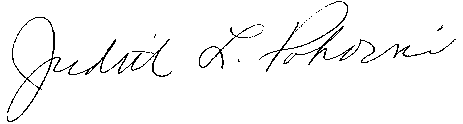 Judith L. Pohorni